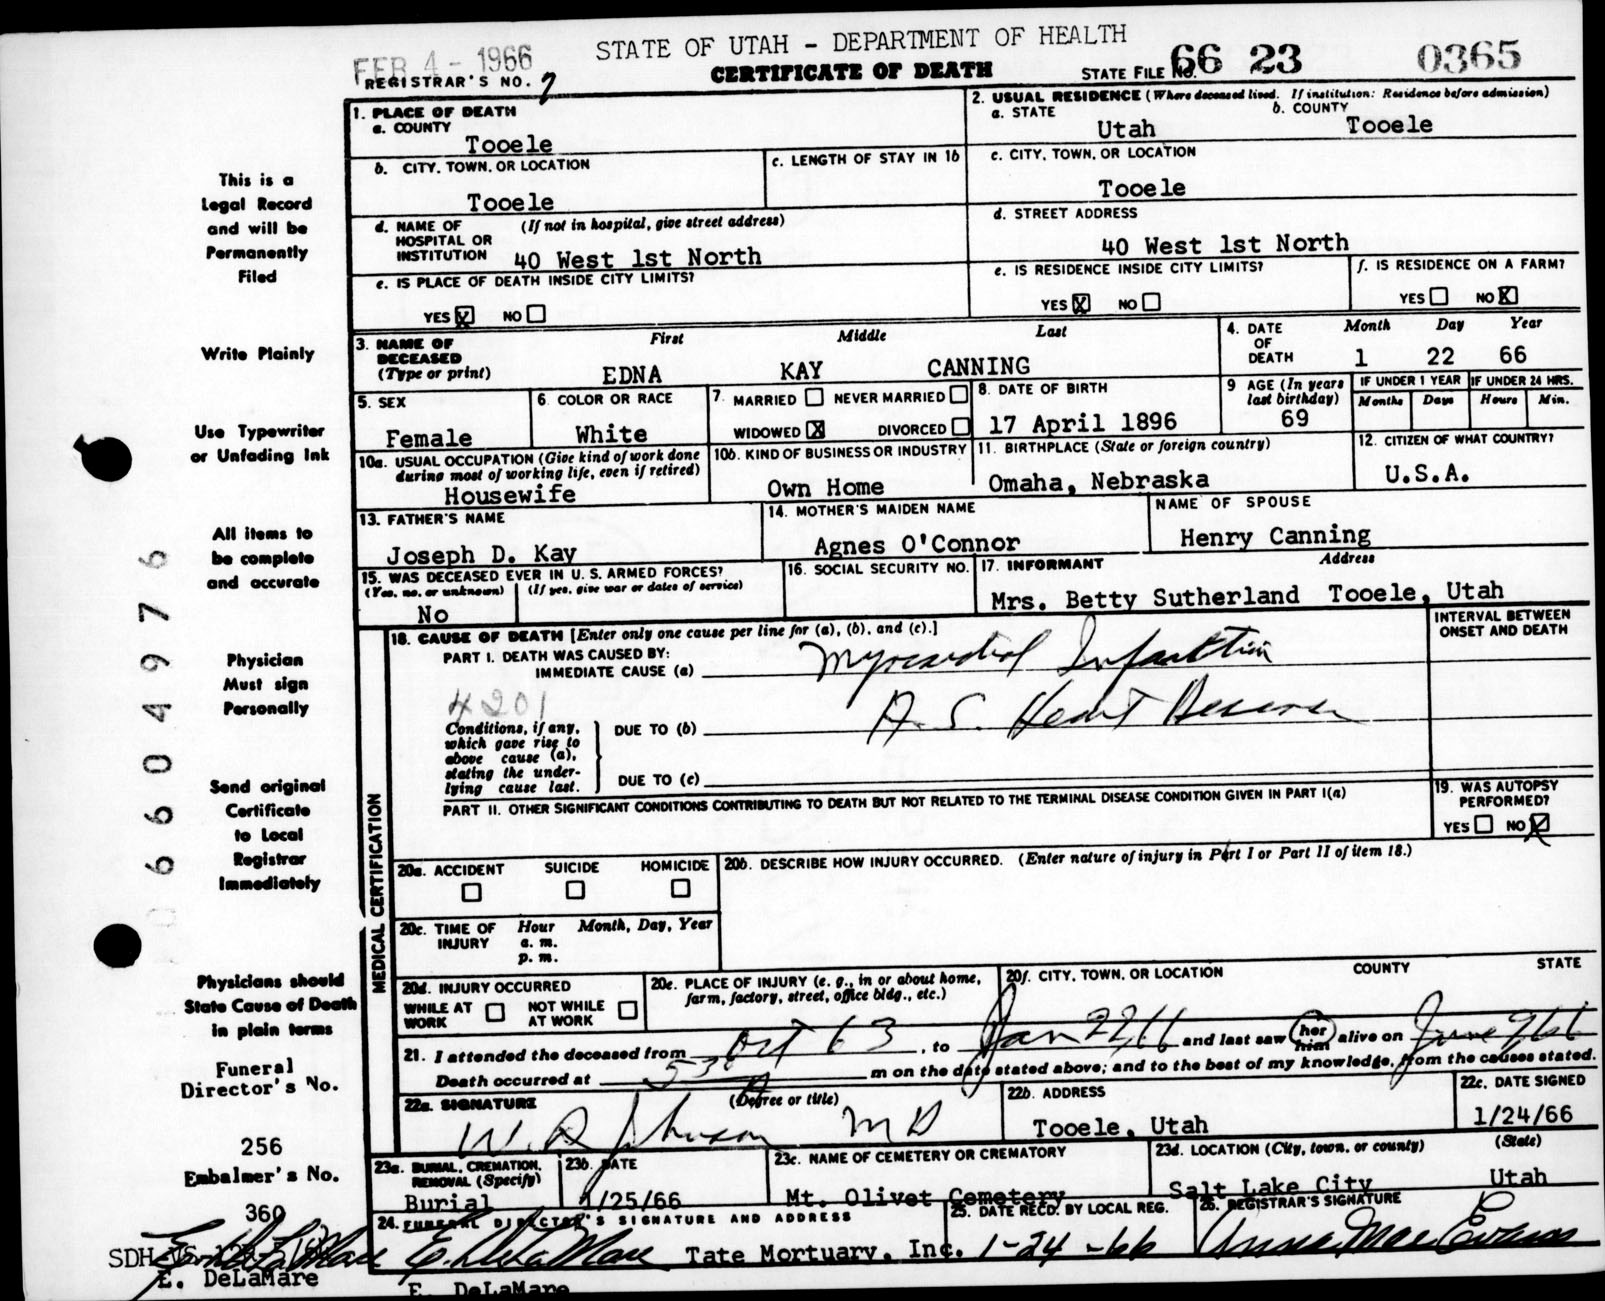 FEB 4 - 1966
STATE OF UTAH - DEPARTMENT OF HEALTH
REGISTRAR'S NO. 7
CERTIFICATE OF DEATH
STATE FILE NO. 66 23 0365
1. PLACE OF DEATH
a. COUNTY
Tooele
2. USUAL RESIDENCE (Where deceased lived. If institution: Residence before admission)
a. STATE b. COUNTY
Utah Tooele
b. CITY, TOWN, OR LOCATION
Tooele
c. LENGTH OF STAY IN 1b
c. CITY, TOWN, OR LOCATION
Tooele
d. NAME OF HOSPITAL OR INSTITUTION (If not in hospital, give street address)
40 West 1st North
d. STREET ADDRESS
40 West 1st North
e. IS PLACE OF DEATH INSIDE CITY LIMITS?
YES X NO
e. IS RESIDENCE INSIDE CITY LIMITS?
YES X NO
f. IS RESIDENCE ON A FARM?
YES NO X
3. NAME OF DECEASED (Type or print)
First Middle Last
EDNA KAY CANNING
4. DATE OF DEATH
Month Day Year
1 22 66
5. SEX
Female
6 COLOR OR RACE
White
7. MARRIED NEVER MARRIED
WIDOWED X DIVORCED
8. DATE OF BIRTH
17 April 1896
9 AGE (In years last birthday)
69
IF UNDER 1 YEAR IF UNDER 24 HRS.
Months Days Hours Min.
10a. USUAL OCCUPATION (Give kind of work done
during most of working life, even if retired)
Housewife
10b. KIND OF BUSINESS OR INDUSTRY
Own Home
11. BIRTHPLACE (State or foreign country)
Omaha, Nebraska
12. CITIZEN OF WHAT COUNTRY?
U.S.A.
13. FATHER'S NAME
Joseph D. Kay
14. MOTHER'S MAIDEN NAME
Agnes O'Connor
NAME OF SPOUSE
Henry Canning
15. WAS DECEASED EVER IN U. S. ARMED FORCES?
(Yes, no, or unknown) (If yes, give war or dates of service)
No
16. SOCIAL SECURITY NO.
17. INFORMANT Address
Mrs. Betty Sutherland Tooele, Utah
MEDICAL CERTIFICATION
18. CAUSE OF DEATH [Enter only one cause per line for (a), (b), and (c).]
INTERVAL BETWEEN
ONSET AND DEATH
PART I. DEATH WAS CAUSED BY:
IMMEDIATE CAUSE (a) Myocardial Infarction
4201
Conditions, if any,
which gave rise to
above cause (a),
stating the under-
lying cause last.
DUE TO (b) A. S. Heart Disease
DUE TO (c)
PART II. OTHER SIGNIFICANT CONDITIONS CONTRIBUTING TO DEATH BUT NOT RELATED TO THE TERMINAL DISEASE CONDITION GIVEN IN PART I(a)
19. WAS AUTOPSY
PERFORMED?
YES NO X
20a. ACCIDENT SUICIDE HOMICIDE
20b. DESCRIBE HOW INJURY OCCURRED. (Enter nature of injury in Part I or Part II of item 18.)
20c. TIME OF INJURY
Hour Month, Day, Year
a. m.
p. m.
20d. INJURY OCCURRED
WHILE AT WORK NOT WHILE AT WORK
20e. PLACE OF INJURY (e. g., in or about home,
farm, factory, street, office bldg., etc.)
20f. CITY, TOWN, OR LOCATION COUNTY STATE
21. I attended the deceased from Oct 63, to Jan 22, 66 and last saw her him alive on
Death occurred at 530 m on the date stated above; and to the best of my knowledge, from the causes stated.
22a. SIGNATURE (Degree or title)
W. D. Johnson M D
22b. ADDRESS
Tooele, Utah
22c. DATE SIGNED
1/24/66
23a. BURIAL, CREMATION,
REMOVAL (Specify)
Burial
23b. DATE
1/25/66
23c. NAME OF CEMETERY OR CREMATORY
Mt. Olivet Cemetery
23d. LOCATION (City, town, or county) (State)
Salt Lake City Utah
24. FUNERAL DIRECTOR'S SIGNATURE AND ADDRESS
E. DeLaMare Tate Mortuary, Inc.
E. DeLaMare
25. DATE RECD. BY LOCAL REG.
1-24-66
26. REGISTRAR'S SIGNATURE
Anna Mae Evans
This is a
Legal Record
and will be
Permanently
Filed
Write Plainly
Use Typewriter
or Unfading Ink
All items to
be complete
and accurate
Physician
Must sign
Personally
Send original
Certificate
to Local
Registrar
Immediately
Physicians should
State Cause of Death
in plain terms
Funeral
Director's No.
256
Embalmer's No.
360
E. DeLaMare
E. DeLaMare
066 04976